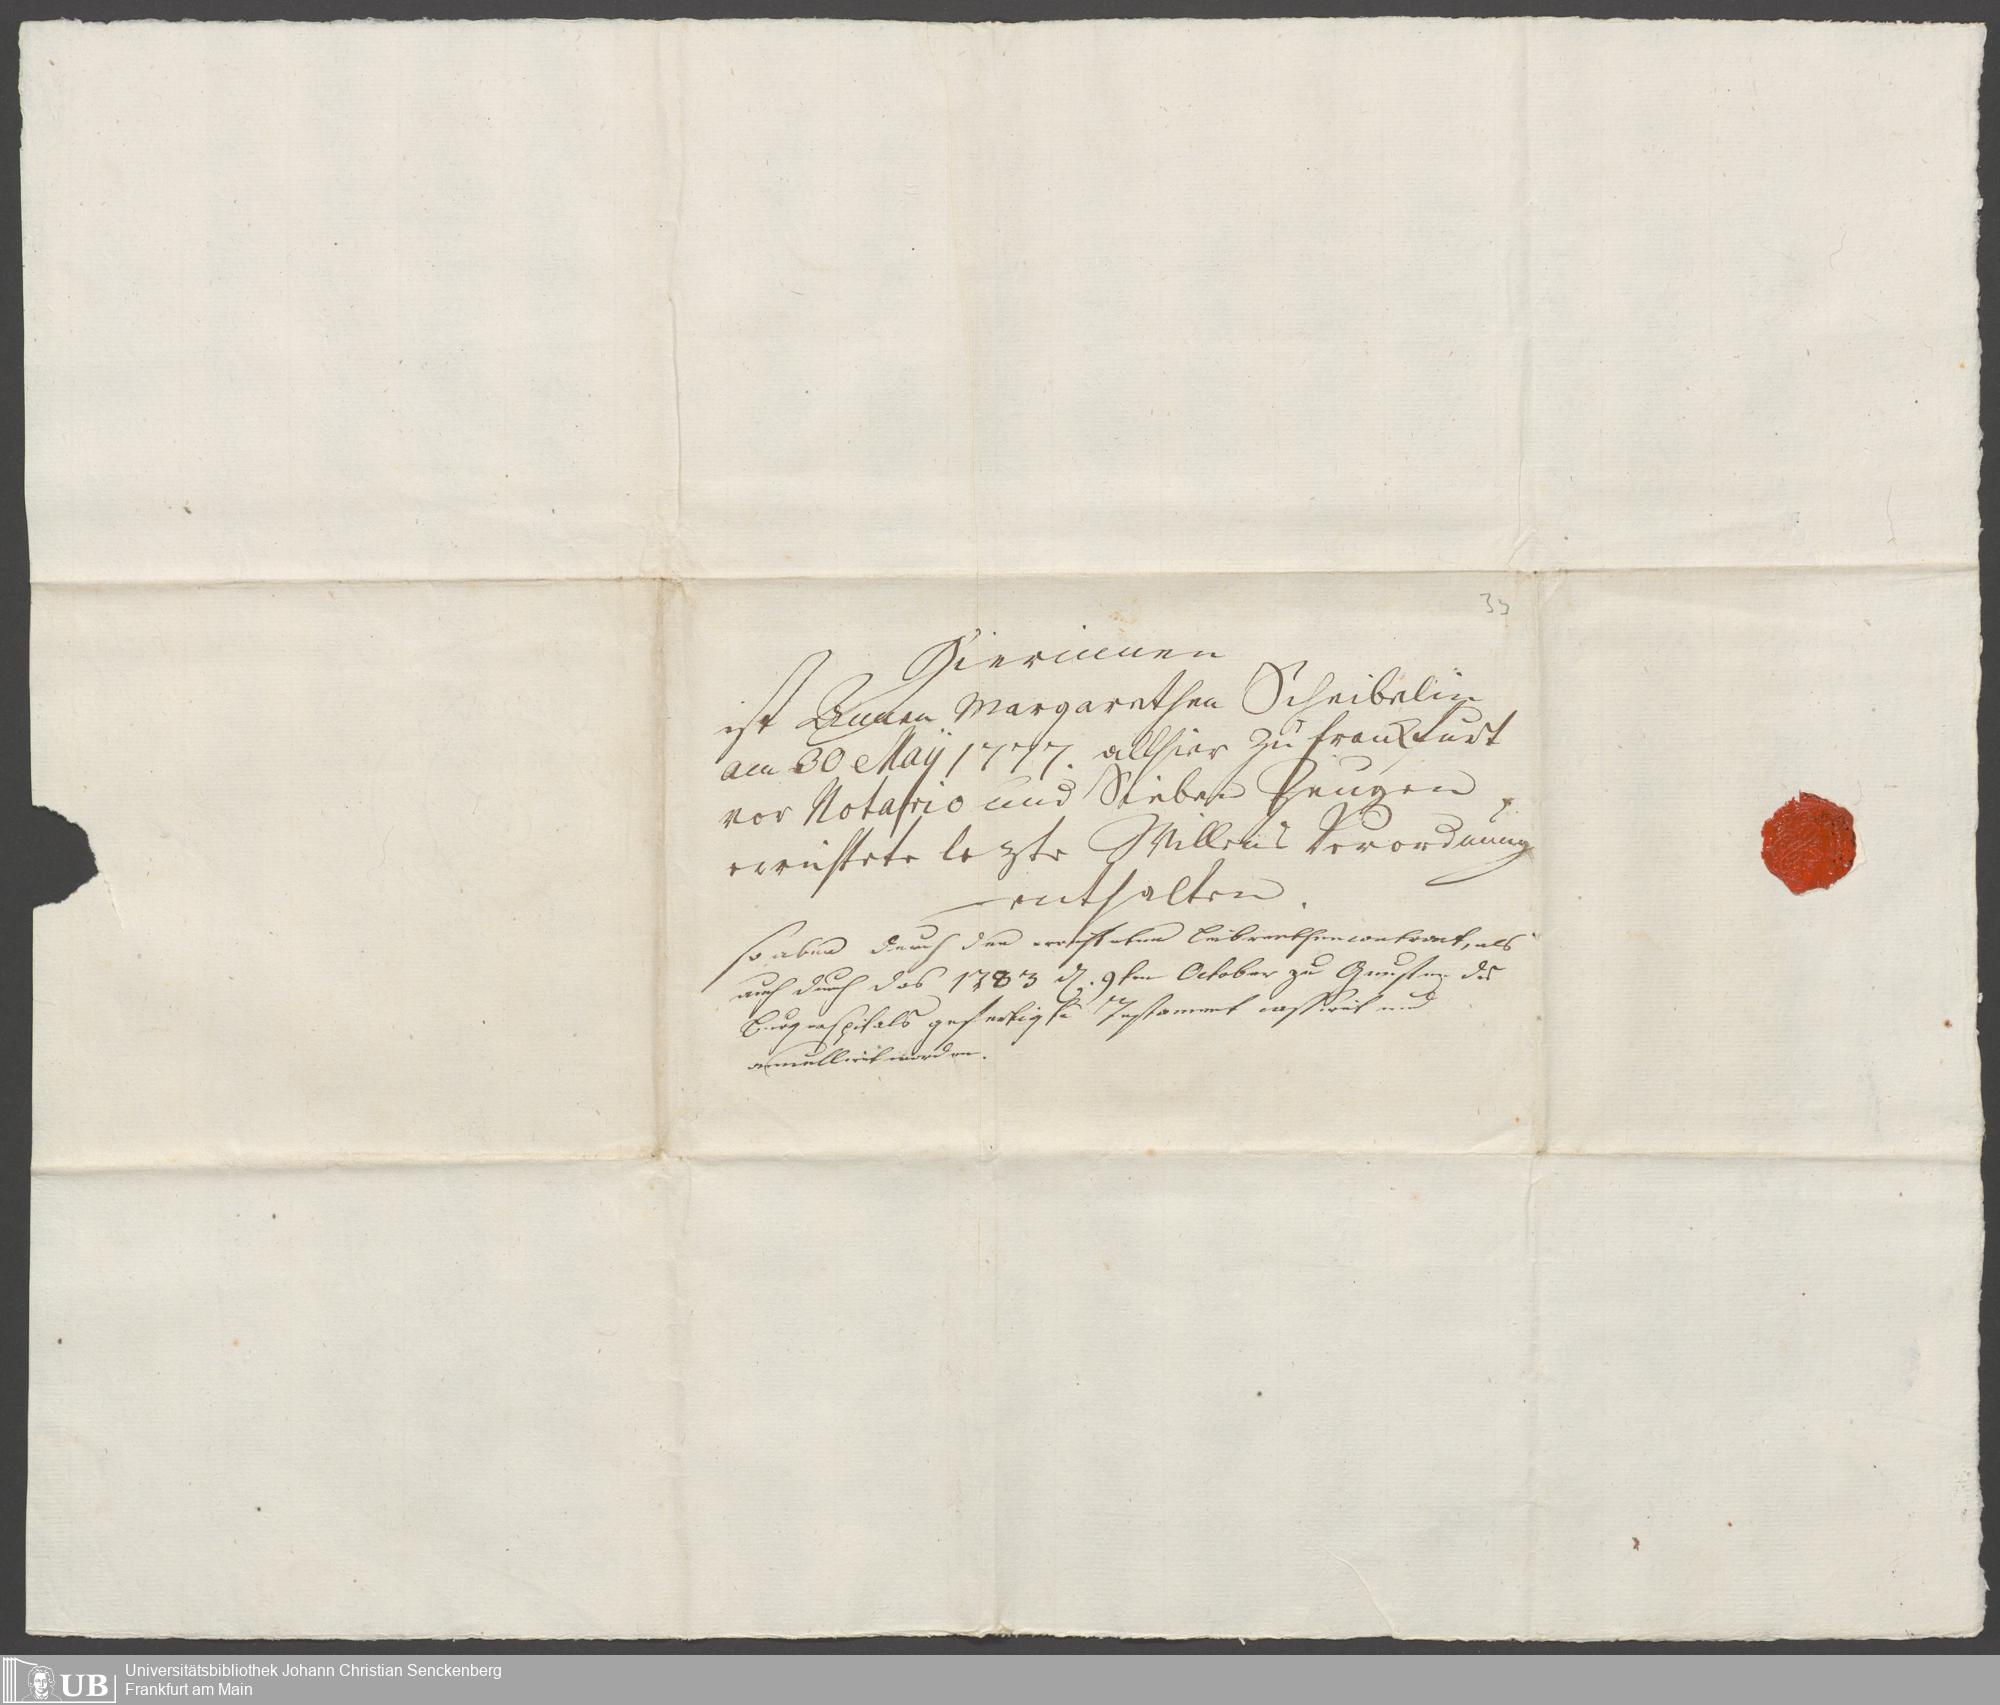 33
Hierinnen
ist Annen Margarethen Scheibelin
am 30 Maÿ 1777. allhier zu Franckfurt
vor Notario und Sieben Zeugen
errichtete lezte Willens Verordnung
enthalten.
so aber durch den errichteten Leibrenthencontract, als
auch durch das 1783 d. 9ten October zu Gunsten des
Burgerspitals gefertigte Testament cassirt und
annullirt worden.
UB
Universitätsbibliothek Johann Christian Senckenberg
Frankfurt am Main